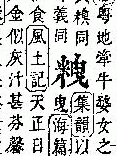 尊地牽牛婺女之
糗同
義同
集韻以
曳海篇
食風土記天正日
金似灰汁甚芬馨